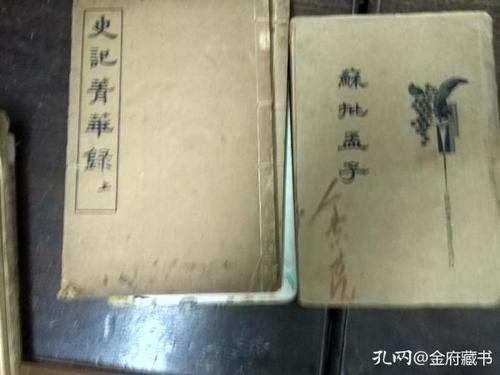 史記菁華録
上
蘇批孟子
孔网@金府藏书